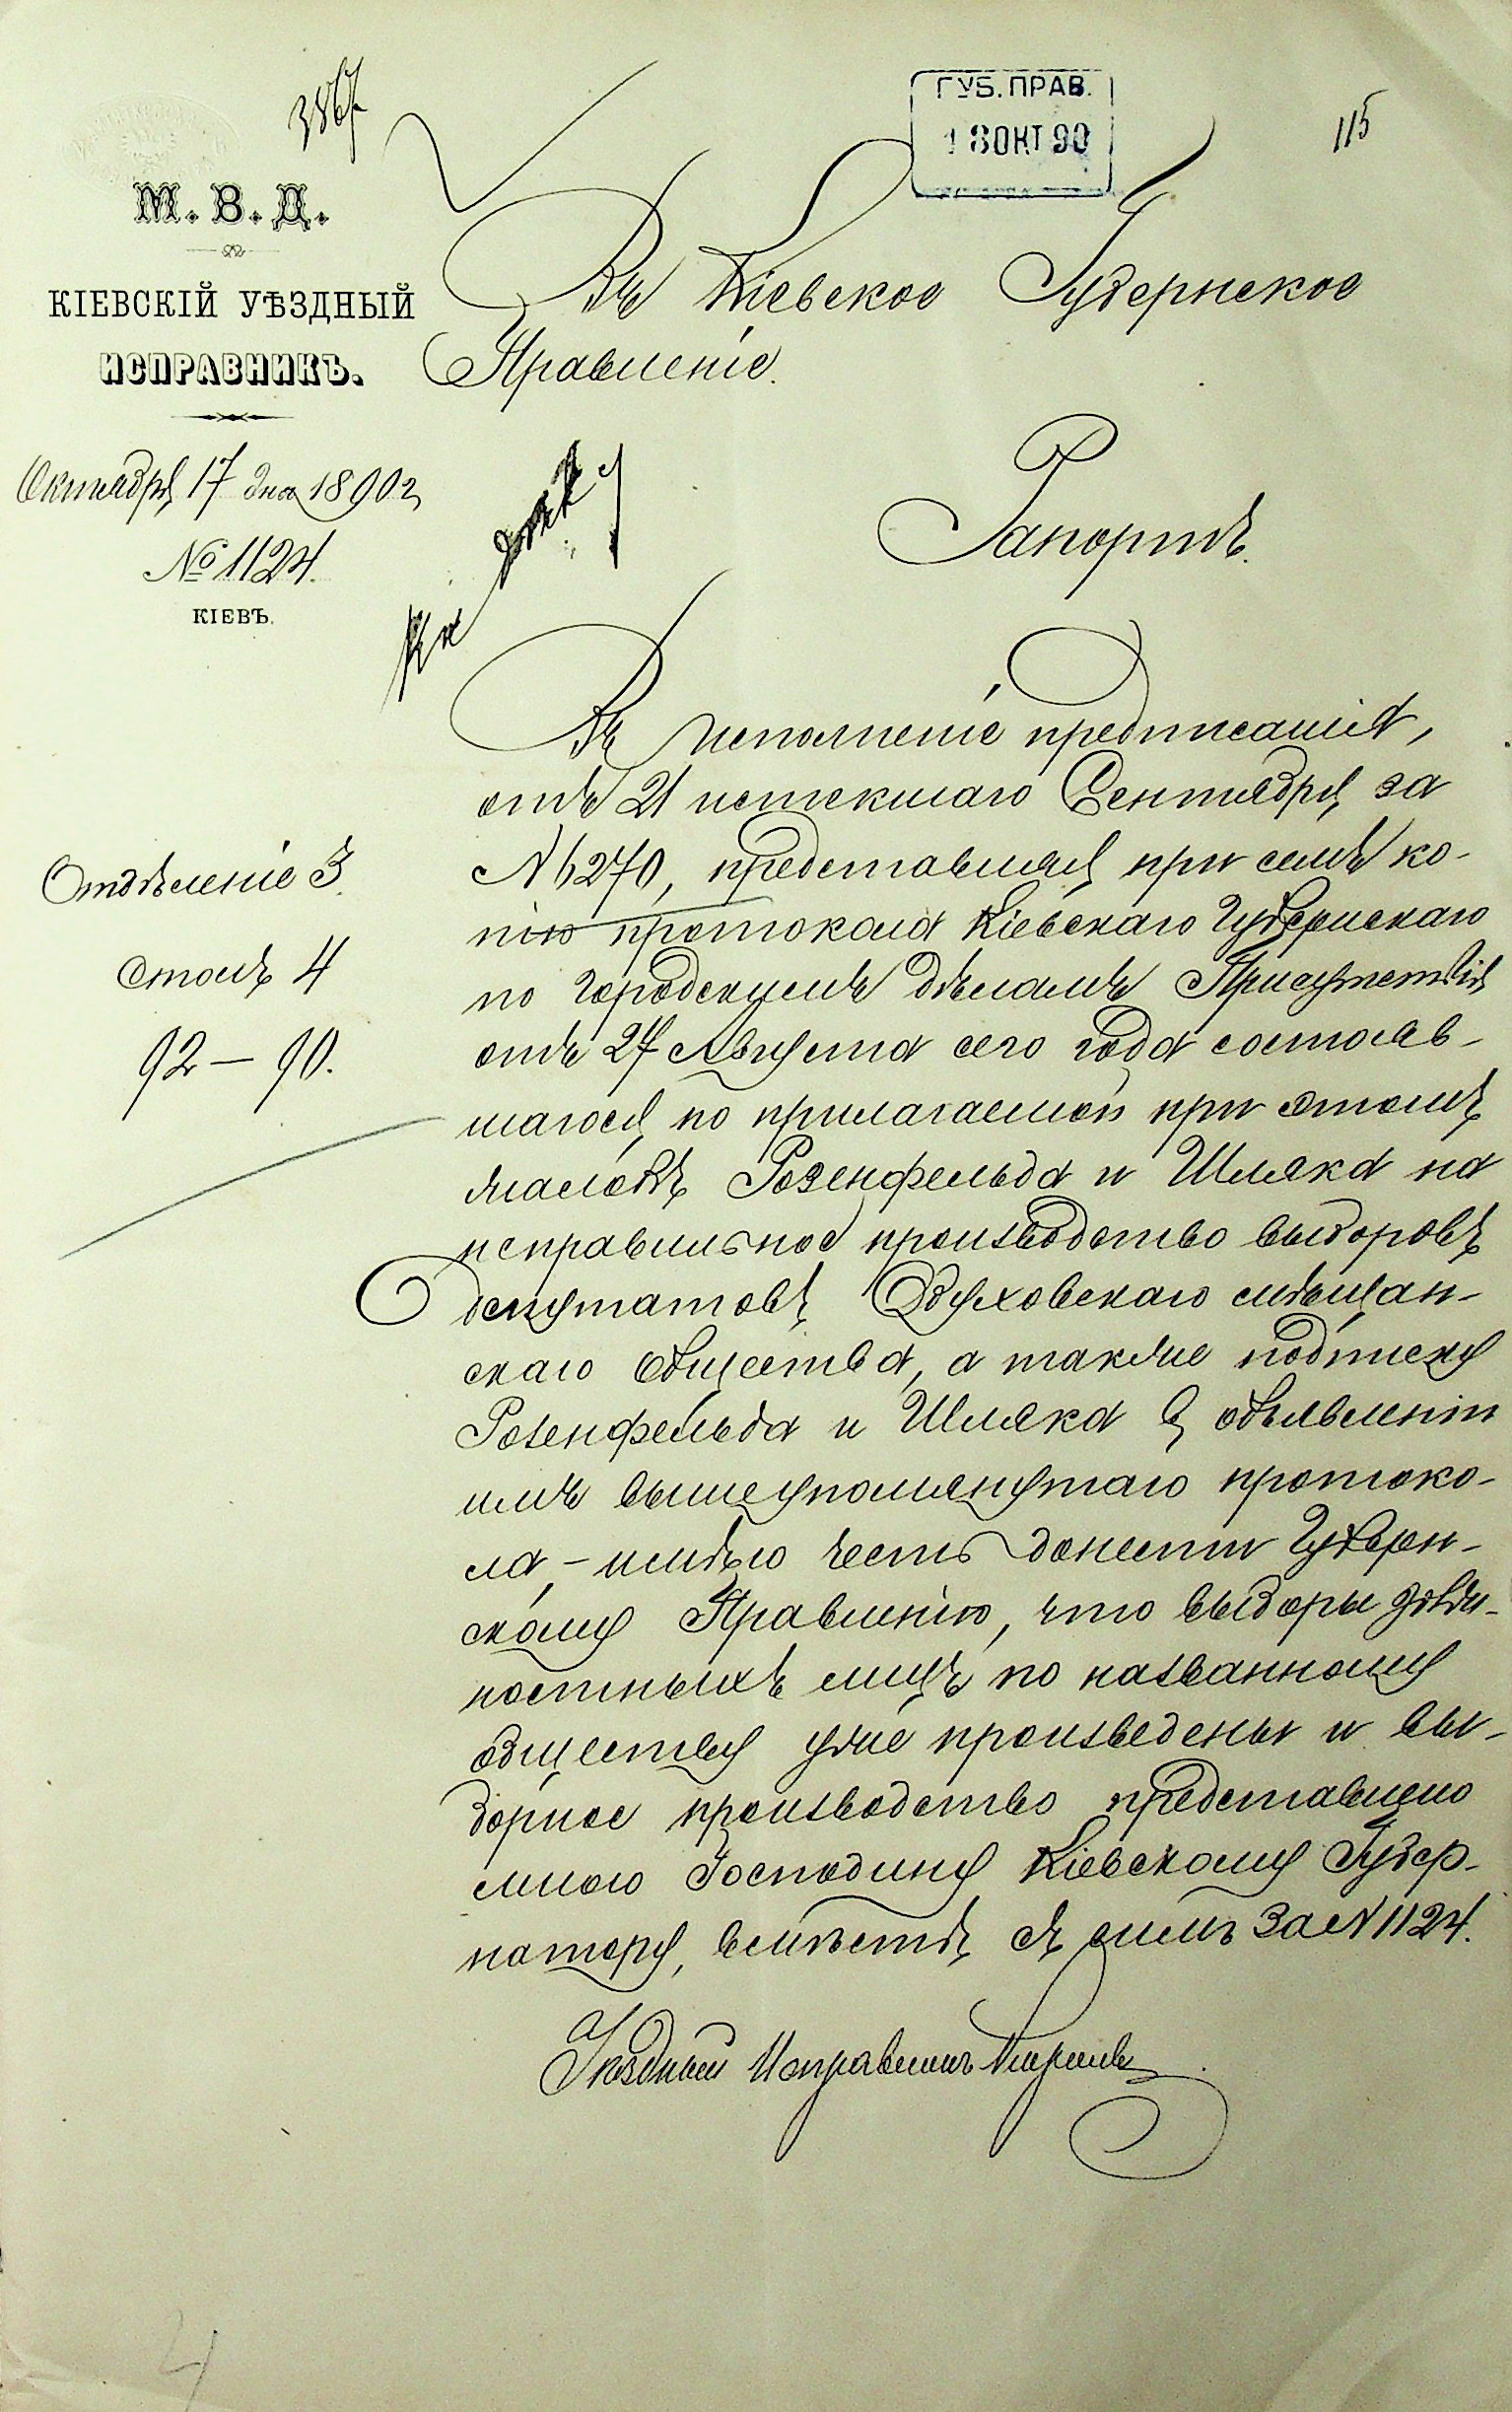 ГУБ. ПРАВ.
18 ОКТ 90
115
М. В. Д.
КІЕВСКІЙ УѢЗДНЫЙ
ИСПРАВНИКЪ.
Октября 17 дня 1890 г.
№ 1124.
КІЕВЪ.
Отдѣленіе 3.
Столъ 4
92 — 90.
Въ Кіевское Губернское
Правленіе.
Рапортъ.
Въ исполненіе предписанія,
отъ 21 истекшаго Сентября за
№ 6270, представляя при семъ ко-
пію протокола Кіевскаго Губернскаго
по городскимъ дѣламъ Присутствія
отъ 24 Августа сего года состояв-
шагося по прилагаемой при этомъ
жалобѣ Розенфельда и Шляка на
неправильное производство выборовъ
депутатовъ Обуховскаго мѣщан-
скаго общества, а также подписку
Розенфельда и Шляка о объявленіи
имъ вышеупомянутаго протоко-
ла, – имѣю честь донести Губерн-
скому Правленію, что выборы долж-
ностныхъ лицъ по названному
обществу уже произведены и вы-
борное производство представлено
мною Господину Кіевскому Губер-
натору, вмѣстѣ съ симъ за № 1124.
Уѣздный Исправникъ
4